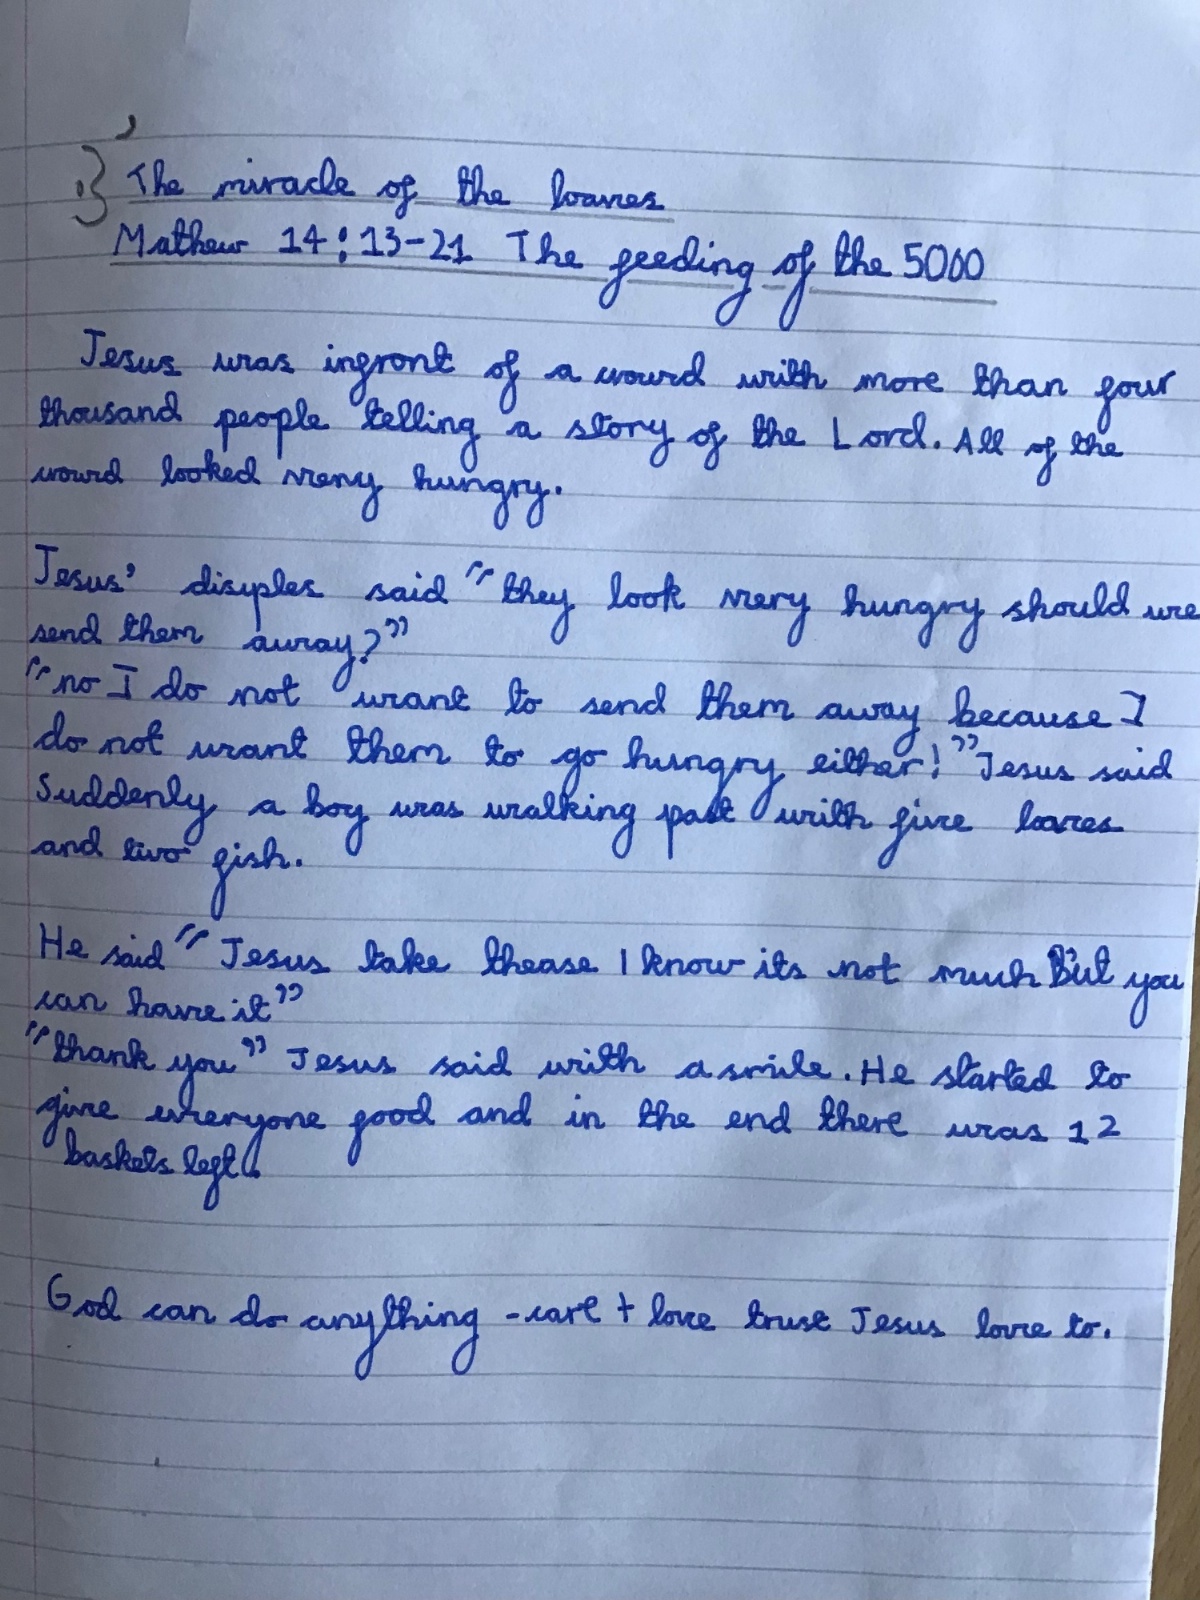 1) The miracle of the loaves
Mathew 14:13-21 The feeding of the 5000
Jesus was infront of a crowd with more than four
thousand people telling a story of the Lord. All of the
crowd looked very hungry.
Jesus' disyples said "they look very hungry should we
send them away?"
"no I do not want to send them away because I
do not want them to go hungry either!" Jesus said
Suddenly a boy was walking past with five loaves
and two fish.
He said "Jesus take thease I know its not much But you
can have it"
"thank you" Jesus said with a smile. He started to
give everyone food and in the end there was 12
baskets left.
God can do anything - care + love trust Jesus love to.